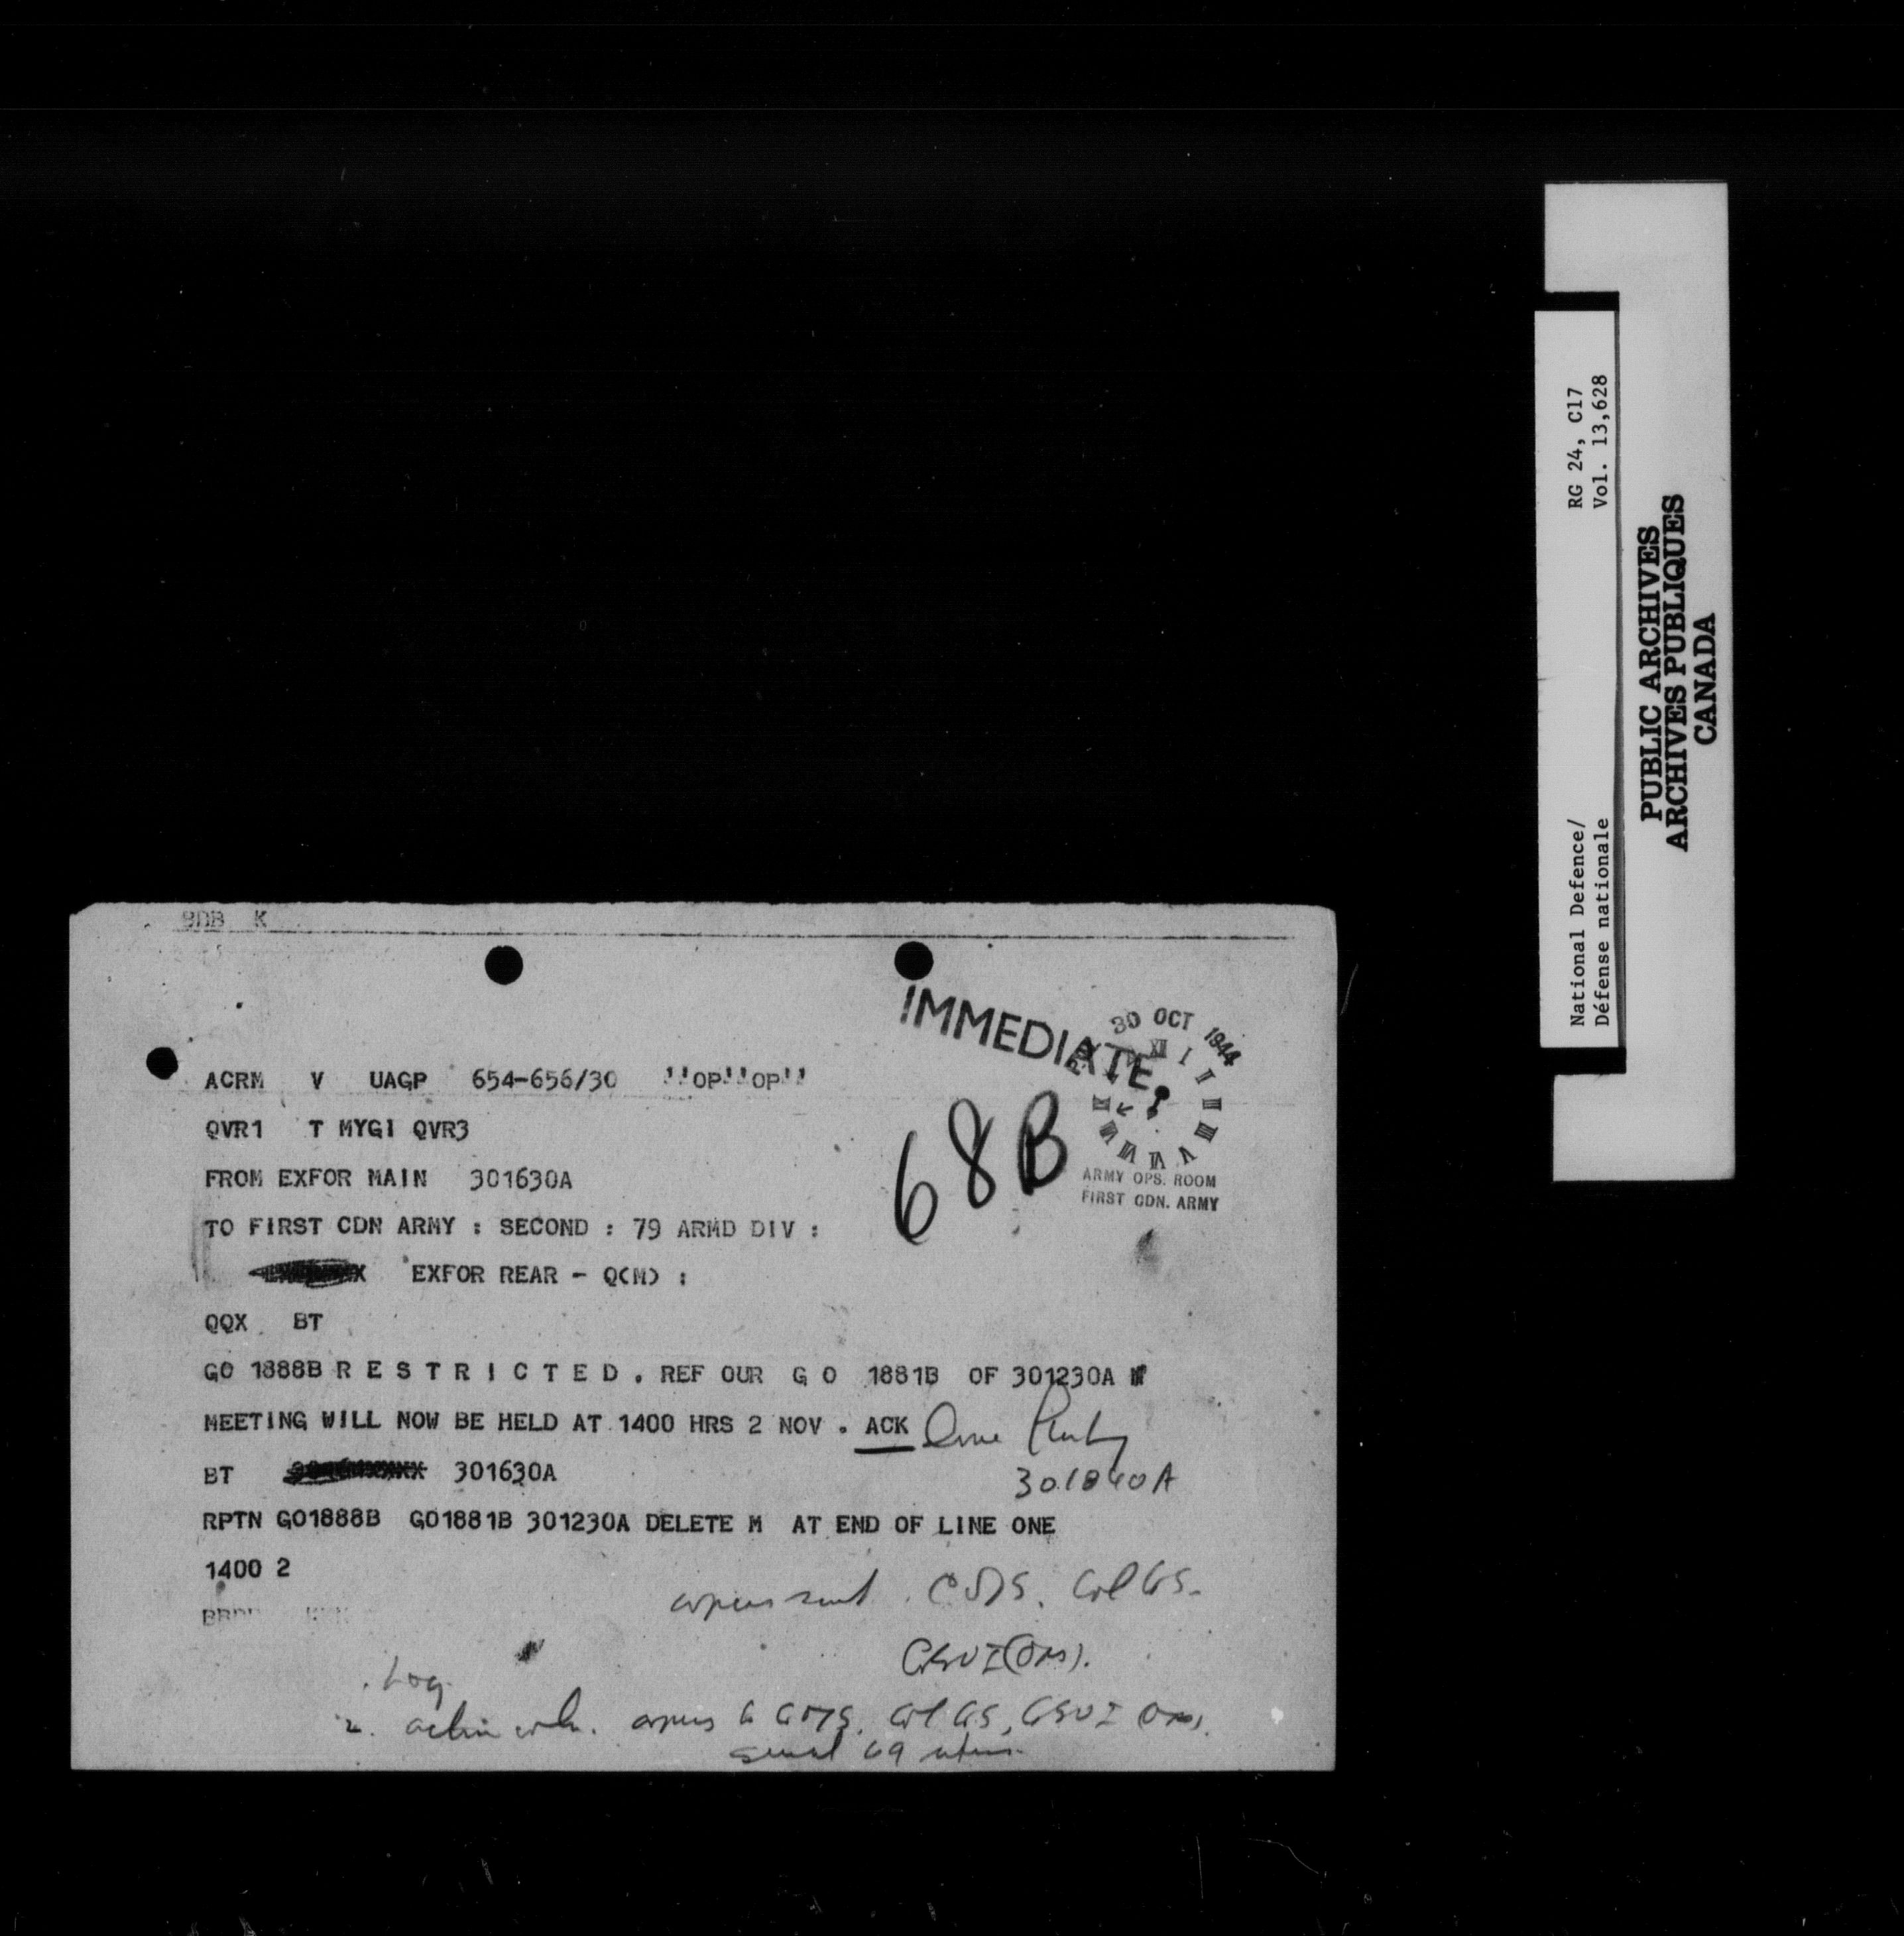 BDB K
IMMEDIATE
30 OCT 1944
XII I II III IIII V VI VII VIII IX
ARMY OPS. ROOM
FIRST CDN. ARMY
68B
ACRM V UAGP 654-656/30 ''OP''OP''
QVR1 T MYGI QVR3
FROM EXFOR MAIN 301630A
TO FIRST CDN ARMY : SECOND : 79 ARMD DIV :
EXFOR REAR - Q(M) :
QQX BT
GO 1888B R E S T R I C T E D . REF OUR G O 1881B OF 301230A
MEETING WILL NOW BE HELD AT 1400 HRS 2 NOV . ACK
BT 301630A
301840A
RPTN GO1888B GO1881B 301230A DELETE M AT END OF LINE ONE
1400 2
copies sent Col GS.
GSO I (Ops).
Log
2. Col GS, GSO I (Ops).
serial 69
RG 24, C17
Vol. 13,628
National Defence/
Défense nationale
PUBLIC ARCHIVES
ARCHIVES PUBLIQUES
CANADA